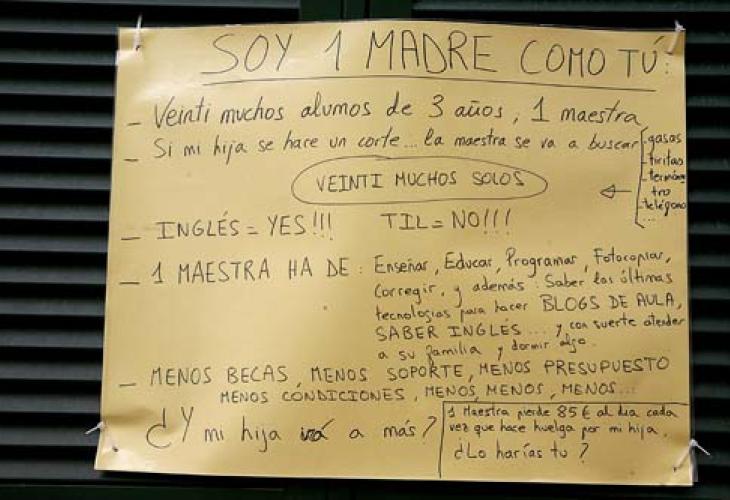 SOY 1 MADRE COMO TÚ:
- Veinti muchos alumos de 3 años, 1 maestra
- Si mi hija se hace un corte... la maestra se va a buscar
- gasas
- tiritas
- termóme
tro
- teléfono
...
VEINTI MUCHOS SOLOS
- INGLÉS = YES!!! TIL = NO!!!
- 1 MAESTRA HA DE: Enseñar, Educar, Programar, Fotocopiar,
Corregir, y además: Saber las últimas
tecnologías para hacer BLOGS DE AULA,
SABER INGLÉS.... y con suerte atender
a su familia y dormir algo.
- MENOS BECAS, MENOS SOPORTE, MENOS PRESUPUESTO
MENOS CONDICIONES, MENOS, MENOS, MENOS...
¿Y mi hija irá a más?
1 Maestra pierde 85 € al dia cada
vez que hace huelga por mi hija.
¿Lo harías tu?